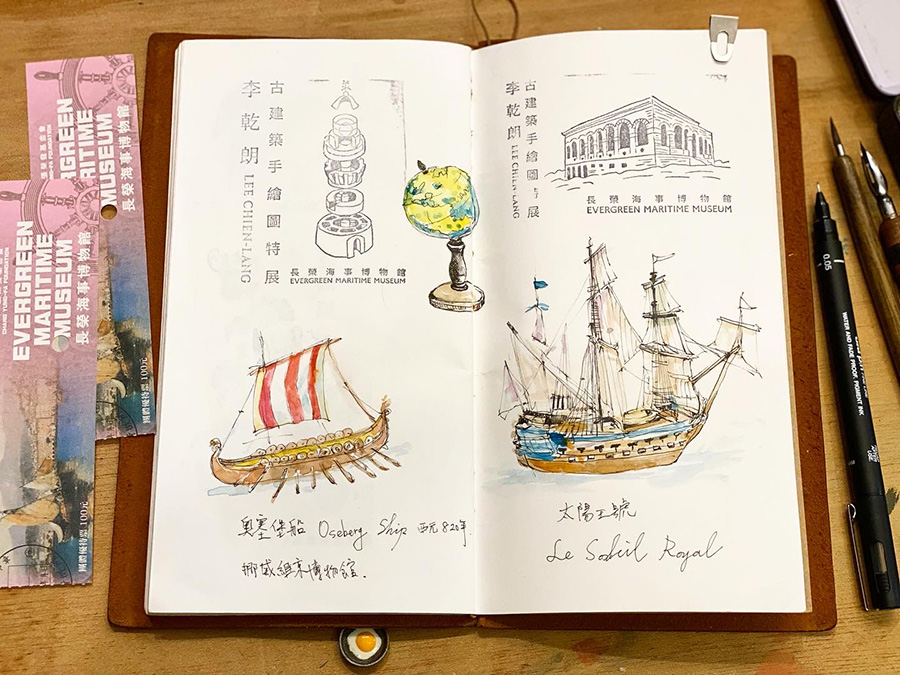 EVERGREEN
MARITIME
MUSEUM
長榮海事博物館
團體優待票 100元
CHANG YUNG-FA FOUNDATION
EVERGREEN
MARITIME
MUSEUM
長榮海事博物館
團體優待票 100元
古建築手繪圖特展
李乾朗 LEE CHIEN-LANG
長榮海事博物館
EVERGREEN MARITIME MUSEUM
奧塞堡船 Oseberg Ship 西元820年.
挪威維京博物館.
古建築手繪圖特展
李乾朗 LEE CHIEN-LANG
長榮海事博物館
EVERGREEN MARITIME MUSEUM
太陽王號
Le Soleil Royal
0.05
WATER AND FADE PROOF, PIGMENT INK